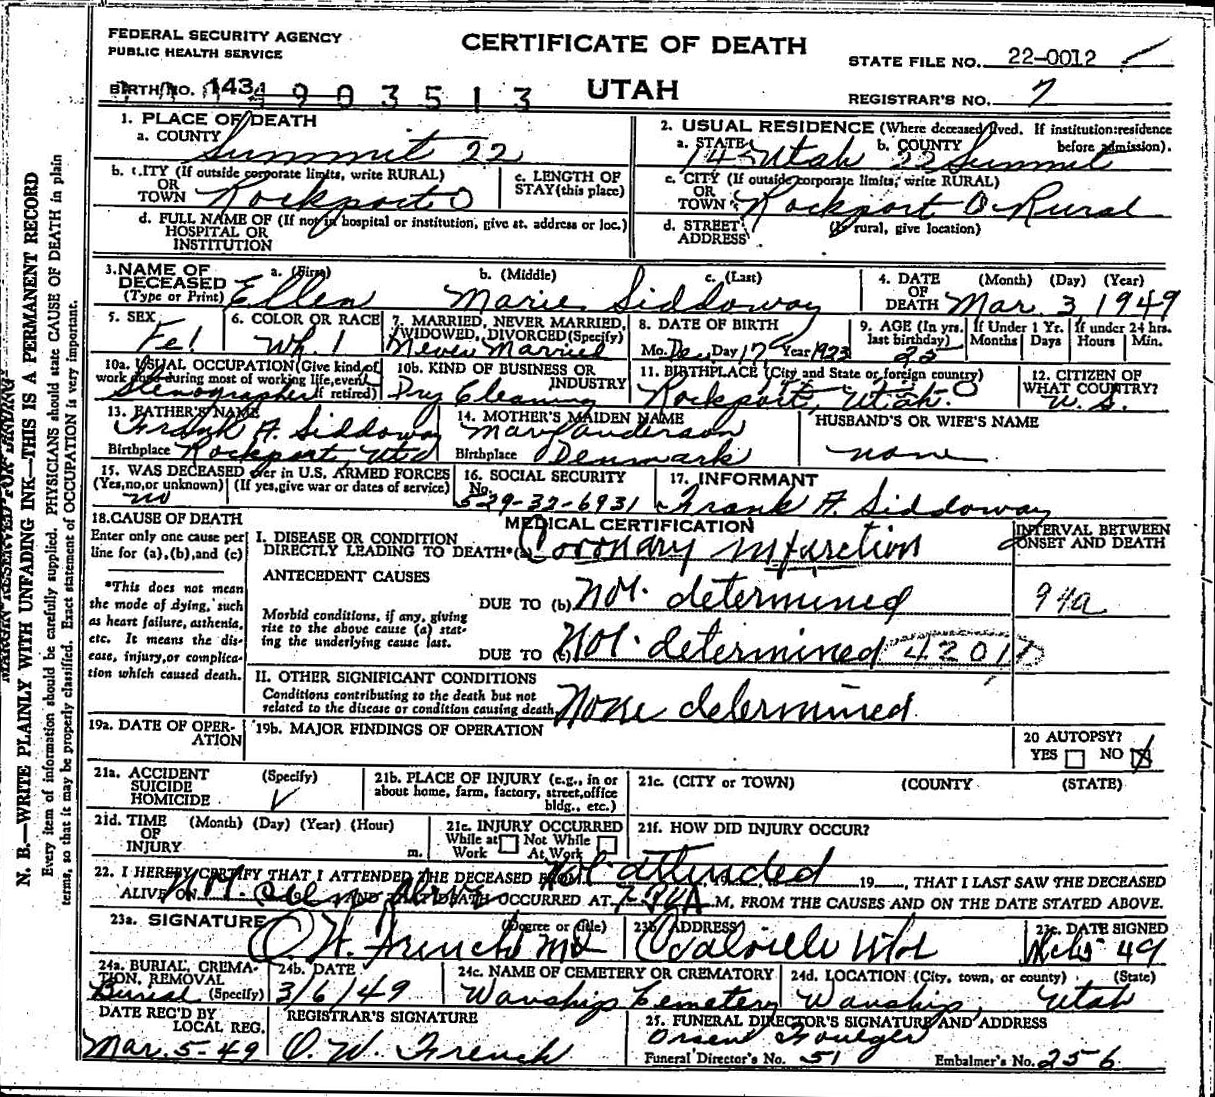 FEDERAL SECURITY AGENCY
PUBLIC HEALTH SERVICE
CERTIFICATE OF DEATH
STATE FILE NO. 22-0012
BIRTH NO. 143 4903513
UTAH
REGISTRAR'S NO. 7
1. PLACE OF DEATH
a. COUNTY Summit 22
2. USUAL RESIDENCE (Where deceased lived. If institution: residence before admission).
a. STATE 14 Utah b. COUNTY 22 Summit
b. CITY (If outside corporate limits, write RURAL)
OR
TOWN Rockport 0
c. LENGTH OF
STAY (this place)
c. CITY (If outside corporate limits, write RURAL)
OR
TOWN Rockport 0 Rural
d. FULL NAME OF (If not in hospital or institution, give st. address or loc.)
HOSPITAL OR
INSTITUTION
d. STREET (If rural, give location)
ADDRESS
3. NAME OF DECEASED (Type or Print)
a. (First) b. (Middle) c. (Last)
Ellen Marie Siddoway
4. DATE OF DEATH (Month) (Day) (Year)
Mar. 3 1949
5. SEX
Fe 1
6. COLOR OR RACE
Wh. 1
7. MARRIED, NEVER MARRIED, WIDOWED, DIVORCED (Specify)
Never Married
8. DATE OF BIRTH
Mo. Dec Day 17 Year 1923
9. AGE (In yrs. last birthday)
25
If Under 1 Yr. Months Days
If under 24 hrs. Hours Min.
10a. USUAL OCCUPATION (Give kind of work done during most of working life, even if retired)
Stenographer
10b. KIND OF BUSINESS OR INDUSTRY
Dry Cleaning
11. BIRTHPLACE (City and State or foreign country)
Rockport, Utah. 0
12. CITIZEN OF WHAT COUNTRY?
U. S.
13. FATHER'S NAME
Frank A. Siddoway
Birthplace Rockport, Utah
14. MOTHER'S MAIDEN NAME
Mary Anderson
Birthplace Denmark
HUSBAND'S OR WIFE'S NAME
none
15. WAS DECEASED ever in U.S. ARMED FORCES
(Yes, no, or unknown) (If yes, give war or dates of service)
no
16. SOCIAL SECURITY No.
529-32-6931
17. INFORMANT
Frank A. Siddoway
18. CAUSE OF DEATH
Enter only one cause per line for (a), (b), and (c)
*This does not mean the mode of dying, such as heart failure, asthenia, etc. It means the disease, injury, or complication which caused death.
MEDICAL CERTIFICATION
INTERVAL BETWEEN ONSET AND DEATH
I. DISEASE OR CONDITION
DIRECTLY LEADING TO DEATH* (a) Coronary infarction
ANTECEDENT CAUSES
DUE TO (b) Not. determined
94a
Morbid conditions, if any, giving rise to the above cause (a) stating the underlying cause last.
DUE TO (c) Not. determined 4201
II. OTHER SIGNIFICANT CONDITIONS
Conditions contributing to the death but not related to the disease or condition causing death. None determined
19a. DATE OF OPERATION
19b. MAJOR FINDINGS OF OPERATION
20 AUTOPSY?
YES NO
21a. ACCIDENT SUICIDE HOMICIDE (Specify)
21b. PLACE OF INJURY (e.g., in or about home, farm, factory, street, office bldg., etc.)
21c. (CITY or TOWN) (COUNTY) (STATE)
21d. TIME OF INJURY (Month) (Day) (Year) (Hour) m.
21e. INJURY OCCURRED
While at Work Not While At Work
21f. HOW DID INJURY OCCUR?
22. I HEREBY CERTIFY THAT I ATTENDED THE DECEASED FROM Not attended 19 , THAT I LAST SAW THE DECEASED
ALIVE ON Not. seen alive AND THAT DEATH OCCURRED AT A M, FROM THE CAUSES AND ON THE DATE STATED ABOVE.
23a. SIGNATURE (Degree or title)
O. W. French MD
23b. ADDRESS
Coalville Utah
23c. DATE SIGNED
5 49
24a. BURIAL, CREMATION, REMOVAL (Specify)
Burial
24b. DATE
3/6/49
24c. NAME OF CEMETERY OR CREMATORY
Wanship Cemetery
24d. LOCATION (City, town, or county) (State)
Wanship, Utah
DATE REC'D BY LOCAL REG.
Mar. 5-49
REGISTRAR'S SIGNATURE
O. W. French
25. FUNERAL DIRECTOR'S SIGNATURE AND ADDRESS
Funeral Director's No. 51 Embalmer's No. 256
MARGIN RESERVED FOR BINDING
N. B.—WRITE PLAINLY WITH UNFADING INK—THIS IS A PERMANENT RECORD
Every item of information should be carefully supplied. PHYSICIANS should state CAUSE OF DEATH in plain
terms, so that it may be properly classified. Exact statement of OCCUPATION is very important.